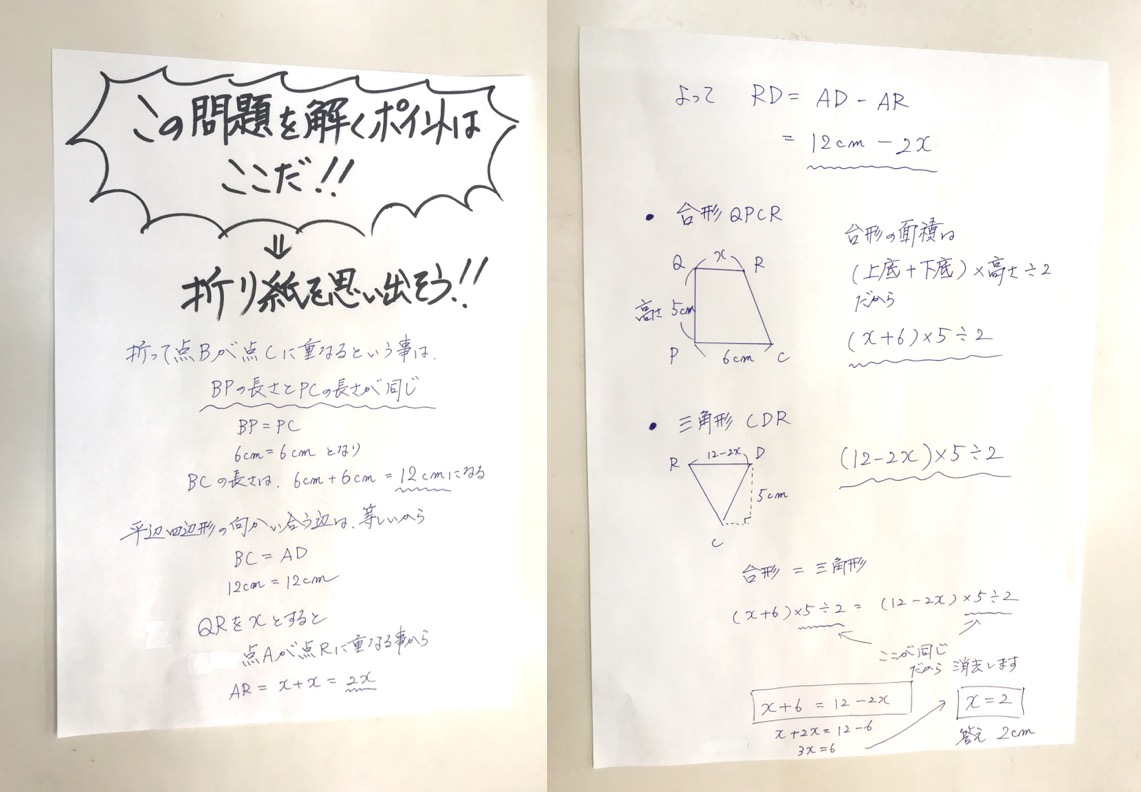 この問題を解くポイントは
ここだ!!
⇓
折り紙を思い出そう!!
折って点Bが点Cに重なるという事は、
BPの長さとPCの長さが同じ
BP=PC
6cm=6cm となり
BCの長さは、6cm+6cm=12cmになる
平辺四辺形の向かい合う辺は、等しいから
BC=AD
12cm=12cm
QRをxとすると
点Aが点Rに重なる事から
AR=x+x=2x
よって RD=AD-AR
=12cm-2x
• 台形QPCR
Q x R
高さ 5cm
P 6cm C
台形の面積は
(上底+下底)×高さ÷2
だから
(x+6)×5÷2
• 三角形CDR
R 12-2x D
5cm
C
(12-2x)×5÷2
台形=三角形
(x+6)×5÷2=(12-2x)×5÷2
ここが同じ
だから 消去します
x+6=12-2x
x+2x=12-6
3x=6
x=2
答え 2cm